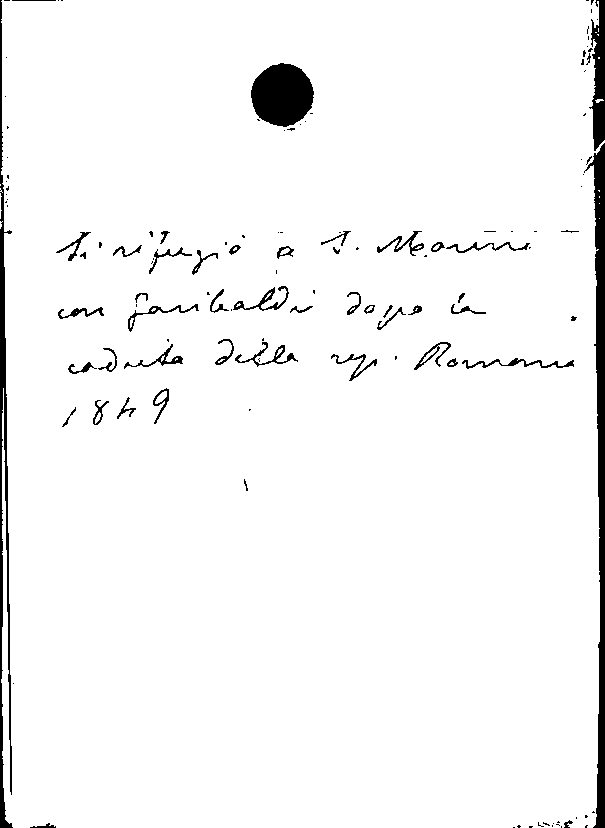 Si rifugiò a S. Marino
con Garibaldi dopo la
caduta della rep. Romana
1849